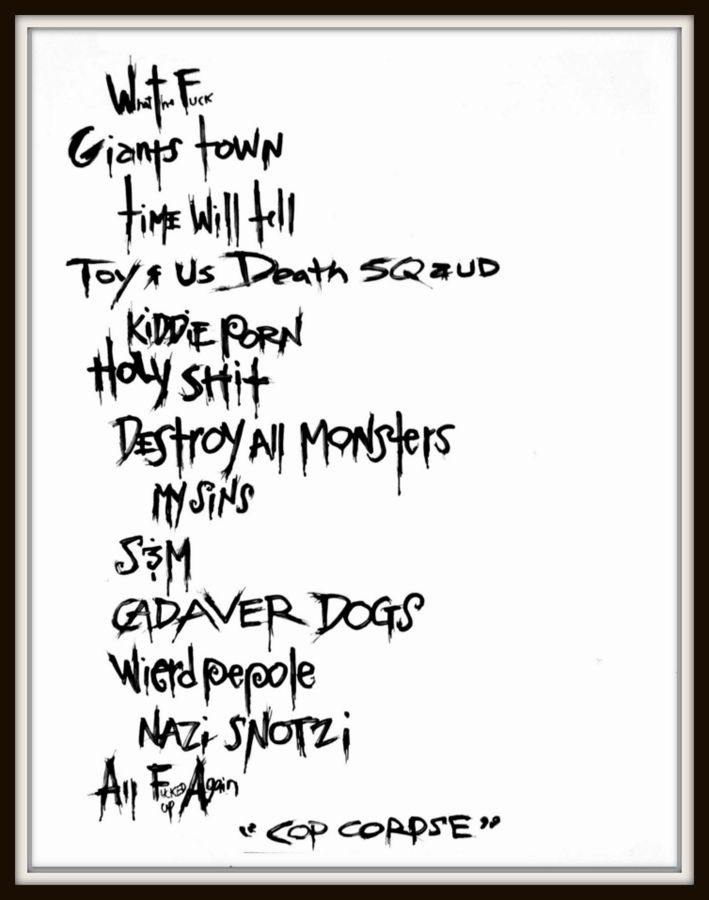 What the Fuck
Giants town
time Will tell
Toy R us Death SQaUD
KiDDiE PORN
HOLY SHit
DEStroy All MONSters
MY SiNS
S&M
CADAVER DOGS
Wierd pepole
NAZi SNOTZi
All FUCKED UP Again
"COP CORPSE"